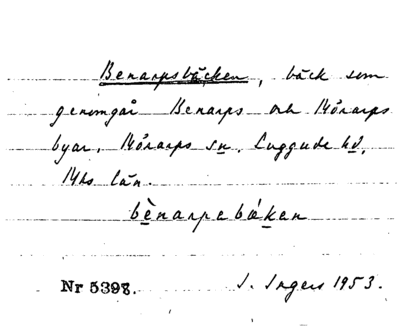 Benarpsbäcken, bäck som
genomgår Benarps och Mörarps
byar, Mörarps sn. Luggude hd,
Mhs län.
bènarpsbäkan
Nr 5398. I. Ingers 1953.